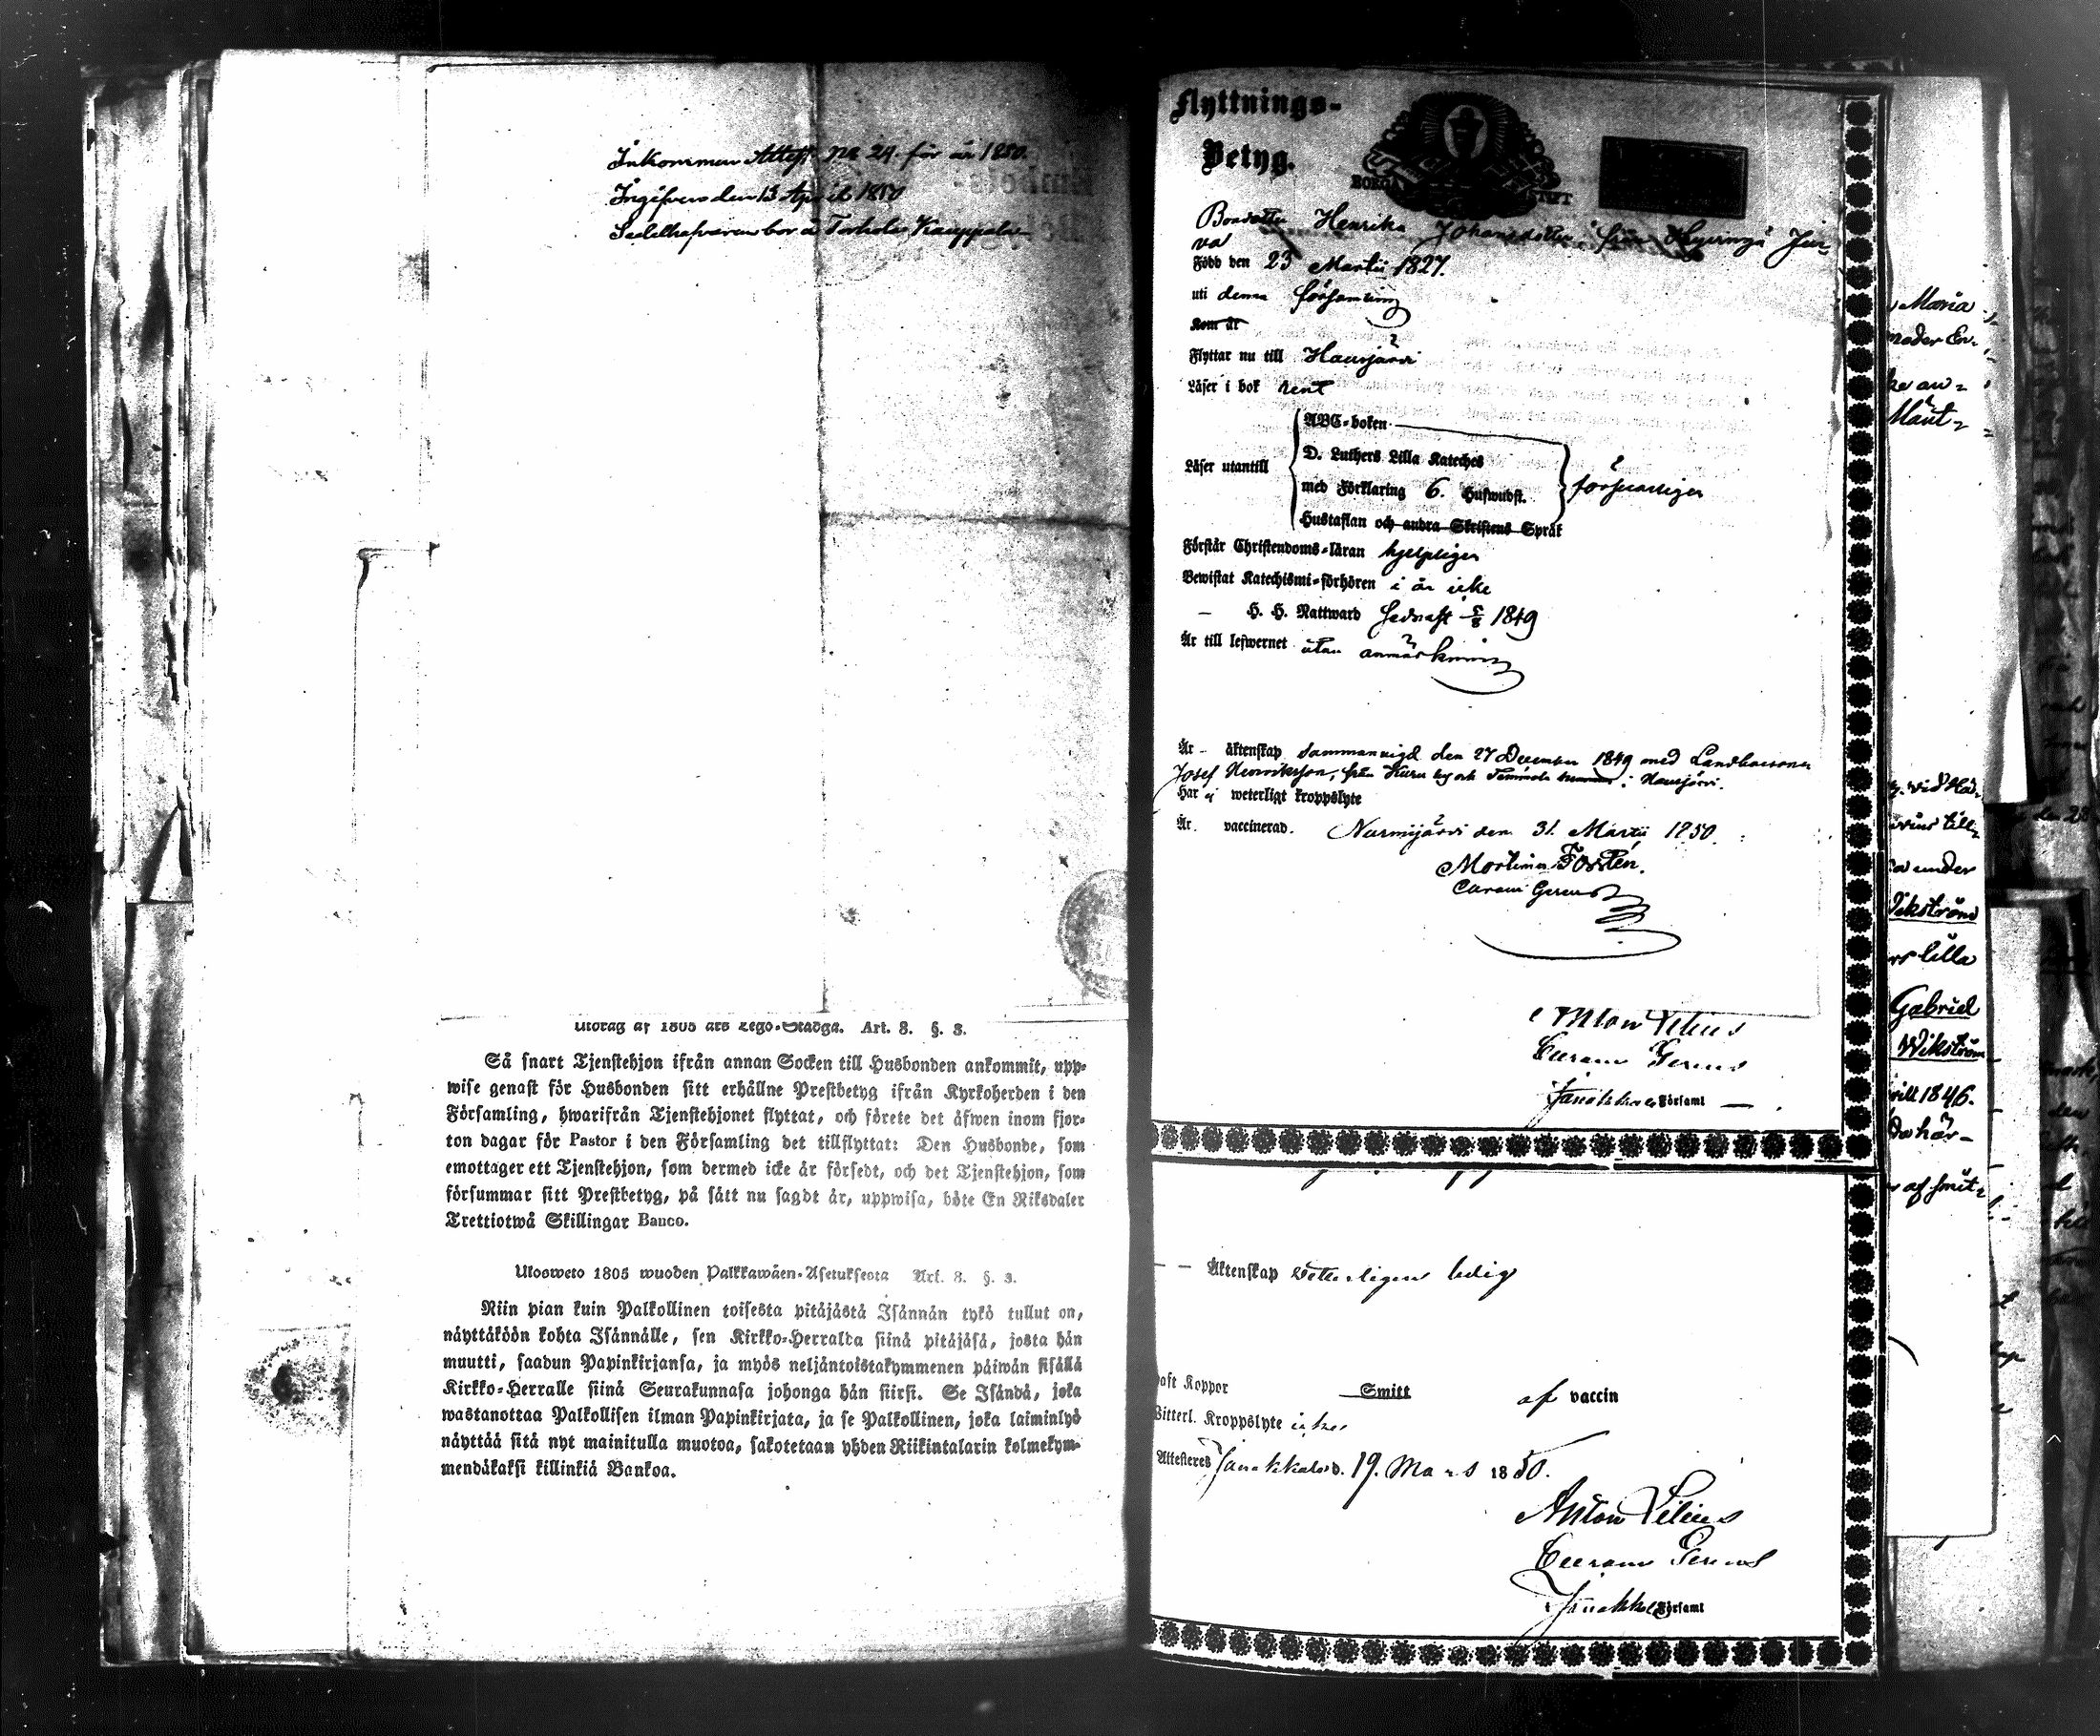 Inkommen Attest No 24. för år 1850.
Ingifven den 13 April 1850
Sedelhafvaren bor å Torhola Kauppala
Utdrag af 1805 års Lego-Stadga. Art. 8. §. 3.
Så snart Tjenstehjon ifrån annan Socken till Husbonden ankommit, upp-
wise genast för Husbonden sitt erhållne Prestbetyg ifrån Kyrkoherden i den
Församling, hwarifrån Tjenstehjonet flyttat, och förete det äfwen inom fjor-
ton dagar för Pastor i den Församling det tillflyttat: Den Husbonde, som
emottager ett Tjenstehjon, som dermed icke är försedt, och det Tjenstehjon, som
försummar sitt Prestbetyg, på sätt nu sagdt är, uppwisa, böte En Riksdaler
Trettiotwå Skillingar Banco.
Ulosweto 1805 wuoden Palkkawäen-Asetuksesta Art. 8. §. 3.
Niin pian kuin Palkollinen toisesta pitäjästä Isännän tykö tullut on,
näyttäköön kohta Isännälle, sen Kirkko-Herralda siinä pitäjäsä, josta hän
muutti, saadun Papinkirjansa, ja myös neljäntoistakymmenen päiwän sisällä
Kirkko-Herralle siinä Seurakunnasa johonga hän siirsi. Se Isändä, joka
wastanottaa Palkollisen ilman Papinkirjata, ja se Palkollinen, joka laiminlyö
näyttää sitä nyt mainitulla muotoa, sakotetaan yhden Riikintalarin kolmekym-
mendäkaksi killinkiä Bankoa.
Flyttnings-
Betyg.
BORGÅ STIFT
Henrika Johansdotter, från
Född den 23 Martii 1827.
uti denna församling
Kom år
Flyttar nu till Hausjärvi
Läser i bok rent
ABC-boken
D. Luthers Lilla Kateches
Läser utantill med Förklaring 6. Hufwudst. försvarligen
Hustaflan och andra Skriftens Språk
Förstår Christendoms-läran hjelpligen
Bewistat Katechismi-förhören i år icke
— H. H. Nattward sednast 1849
Är till lefwernet utan anmärkning
Är äktenskap sammanvigd den 27 December 1849 med Landbosonen
Josef Henriksson, från by och i Hausjärvi.
Har ej weterligt kroppslyte
Är vaccinerad. Nurmijärvi den 31. Martii 1850.
Mortimer Forstén.
Curam Gerens
Anton Lilius
Curam Gerens
Janakkala Församl —.
— — Äktenskap vetterligen ledig
haft Koppor Smitt af vaccin
Witterl. Kroppslyte icke
Attesteres Janakkala d. 19. Mars 1850.
Anton Lilius
Curam Gerens
Janakkala Församl
Maria
Gabriel
Wikström